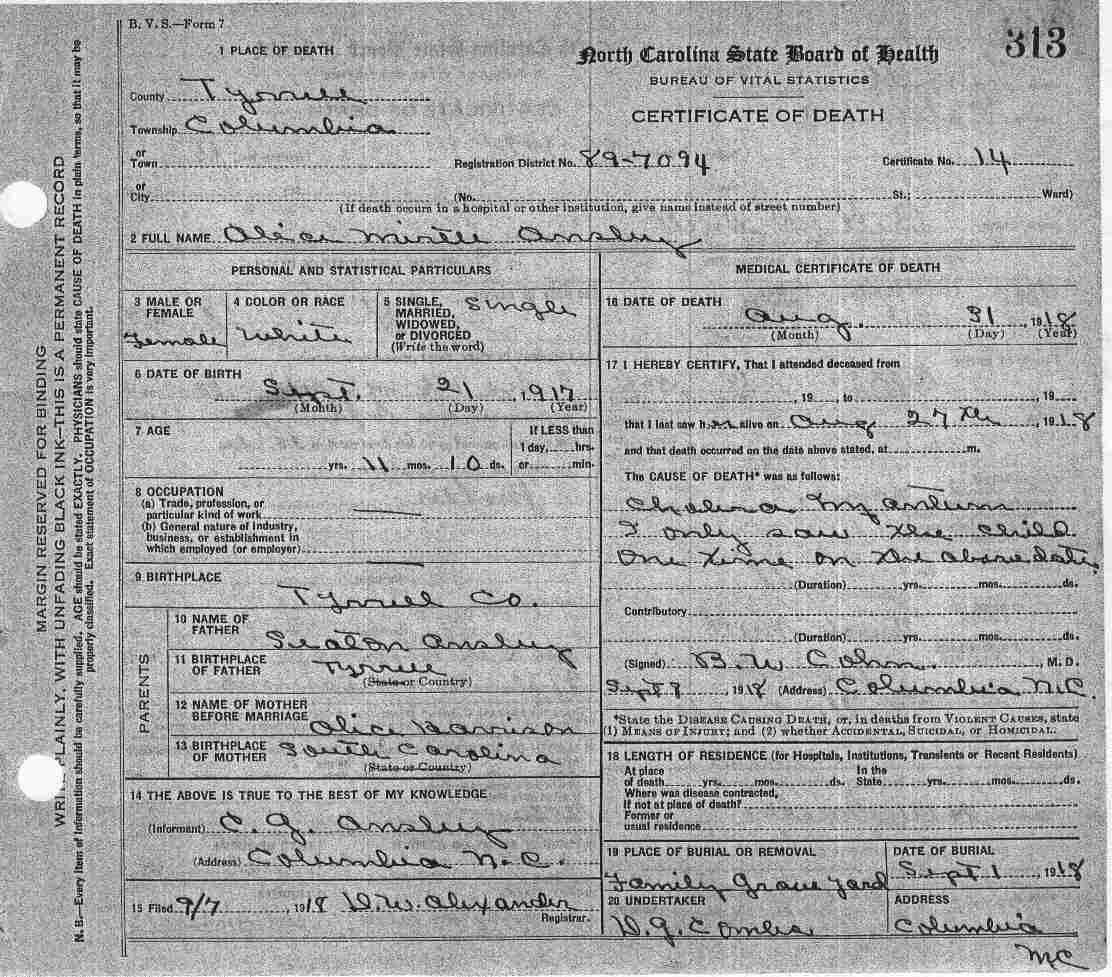 B. V. S.—Form 7
313
1 PLACE OF DEATH
North Carolina State Board of Health
BUREAU OF VITAL STATISTICS
CERTIFICATE OF DEATH
County Tyrrell
Township Columbia
or
Town
Registration District No. 89-7094
Certificate No. 14
or
City (No. St.; Ward)
(If death occurs in a hospital or other institution, give name instead of street number)
2 FULL NAME Alice Mirtle Ansley
PERSONAL AND STATISTICAL PARTICULARS
3 MALE OR FEMALE
Female
4 COLOR OR RACE
White
5 SINGLE, MARRIED, WIDOWED, or DIVORCED (Write the word)
Single
6 DATE OF BIRTH
Sept. 21, 1917
(Month) (Day) (Year)
7 AGE
yrs. 11 mos. 10 ds.
If LESS than
1 day, hrs.
or min.
8 OCCUPATION
(a) Trade, profession, or
particular kind of work
(b) General nature of industry,
business, or establishment in
which employed (or employer)
9 BIRTHPLACE
Tyrrell Co.
PARENTS
10 NAME OF FATHER
Seaton Ansley
11 BIRTHPLACE OF FATHER
Tyrrell
(State or Country)
12 NAME OF MOTHER BEFORE MARRIAGE
Alice Harrison
13 BIRTHPLACE OF MOTHER
South Carolina
(State or Country)
14 THE ABOVE IS TRUE TO THE BEST OF MY KNOWLEDGE
(Informant) C. G. Ansley
(Address) Columbia N.C.
15 Filed 9/7, 1918 D.W. Alexander
Registrar.
MEDICAL CERTIFICATE OF DEATH
16 DATE OF DEATH
Aug. 31, 1918
(Month) (Day) (Year)
17 I HEREBY CERTIFY, That I attended deceased from
, 19 , to , 19
that I last saw h er alive on Aug 27th, 1918
and that death occurred on the date above stated, at m.
The CAUSE OF DEATH* was as follows:
Cholera Infantum
I only saw the child
one time on the above date.
(Duration) yrs. mos. ds.
Contributory
(Duration) yrs. mos. ds.
(Signed) B. W. Cohn., M. D.
Sept 8, 1918 (Address) Columbia N.C.
*State the DISEASE CAUSING DEATH, or, in deaths from VIOLENT CAUSES, state
(1) MEANS OF INJURY; and (2) whether ACCIDENTAL, SUICIDAL, or HOMICIDAL.
18 LENGTH OF RESIDENCE (for Hospitals, Institutions, Transients or Recent Residents)
At place of death yrs. mos. ds. In the State yrs. mos. ds.
Where was disease contracted,
If not at place of death?
Former or
usual residence
19 PLACE OF BURIAL OR REMOVAL
Family Grave Yard
DATE OF BURIAL
Sept 1, 1918
20 UNDERTAKER
ADDRESS
Columbia
NC
MARGIN RESERVED FOR BINDING
WRITE PLAINLY, WITH UNFADING BLACK INK—THIS IS A PERMANENT RECORD
N. B.—Every item of information should be carefully supplied. AGE should be stated EXACTLY. PHYSICIANS should state CAUSE OF DEATH in plain terms, so that it may be
properly classified. Exact statement of OCCUPATION is very important.